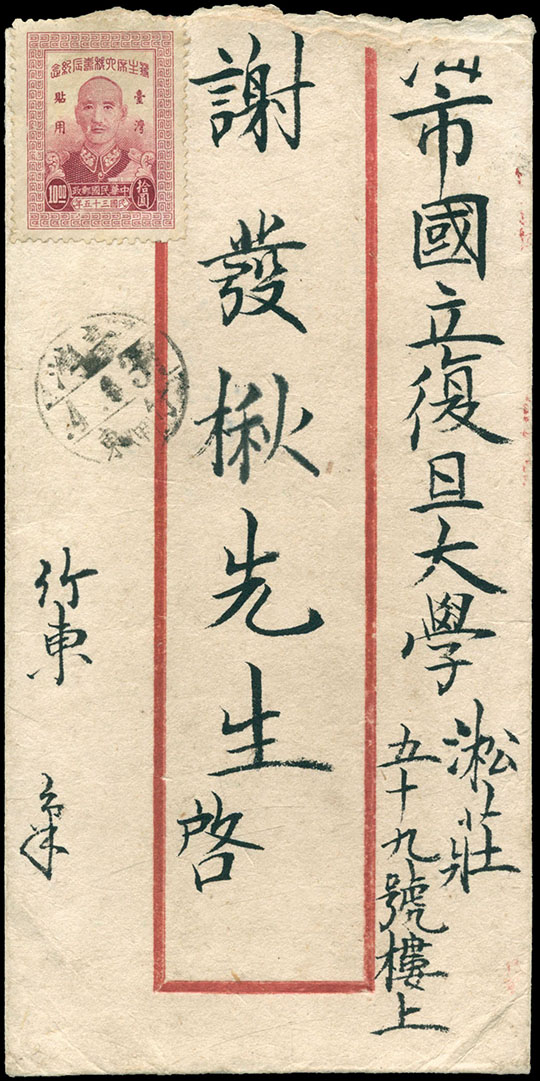 市國立復旦大學
淞莊
五十九號樓上
謝發楸先生啓
竹東
主席六秩壽辰紀念
臺灣
貼用
拾圓
10.00
中華民國郵政
民國三十五年